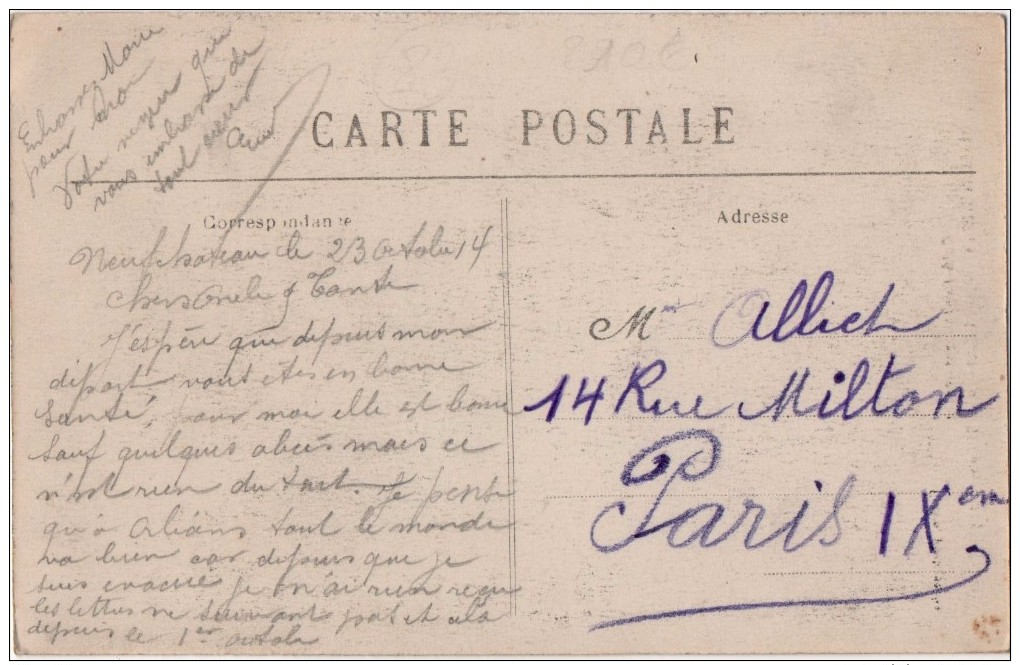 Embrassez Marie
pour
Votre qui
vous embrasse de
tout cœur
CARTE POSTALE
Correspondance
Adresse
Neufchateau le 23 octobre 14
Chers Oncle & Tante
J'espère que depuis mon
départ vous etes en bonne
santé, pour moi elle est bonne
sauf quelques abcès mais ce
n'est rien du tout. Je pense
qu'à Orléans tout le monde
va bien car depuis que je
suis evacué je n'ai rien reçu
les lettres ne suivant pas et cela
depuis le 1er octobre
Mr Allich
14 Rue Milton
Paris IXem